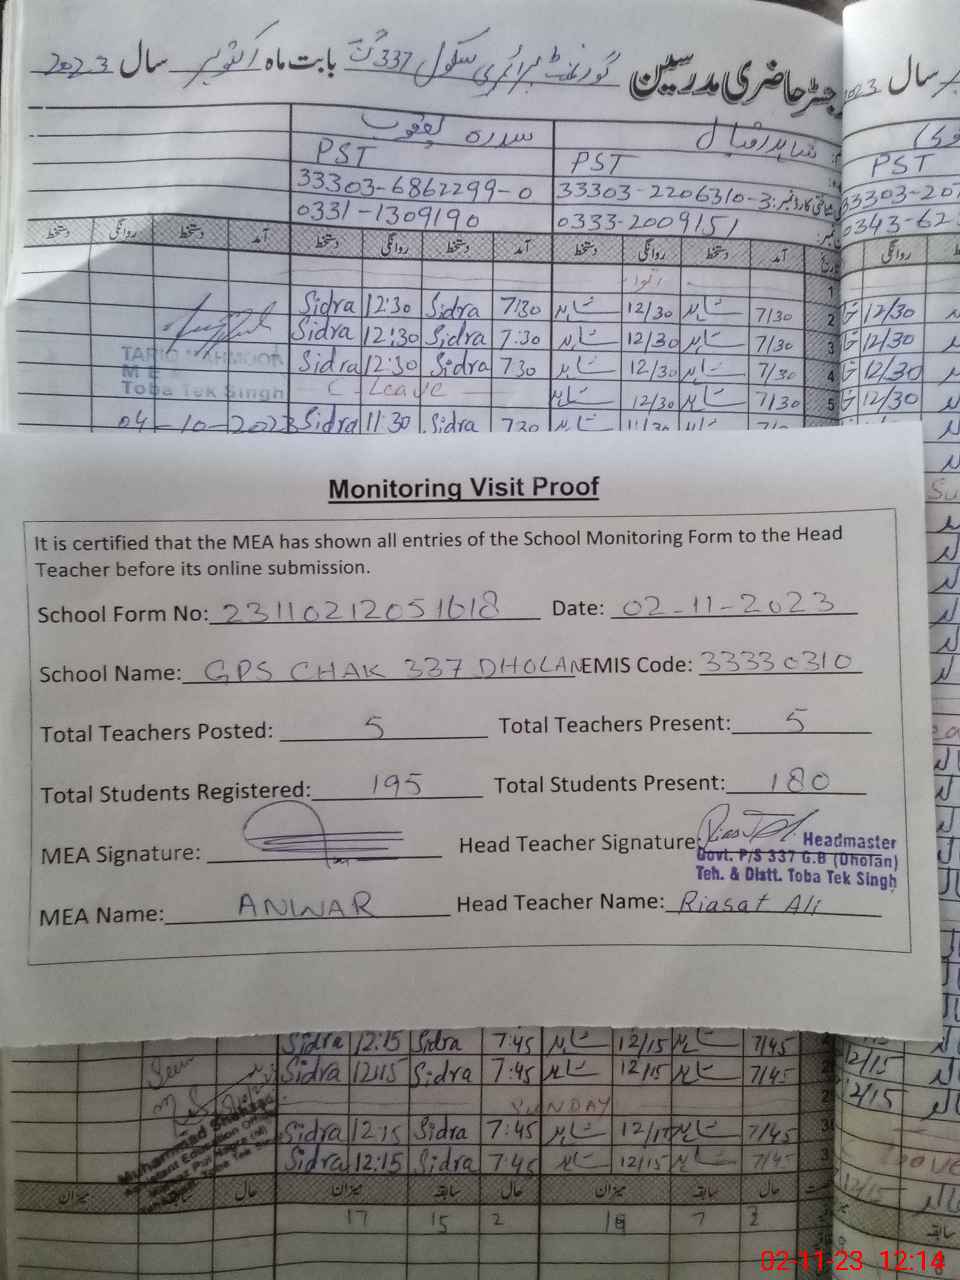 رجسٹر حاضری مدرسین گورنمنٹ پرائمری سکول 337 گ ب بابت ماہ اکتوبر سال 2023
سال 2023
شاہد اقبال سدرہ یعقوب
PST PST PST
33303-6862299-0 33303-2206310-3 33303-207
0331-1309190 0333-2009151 0343-62
آمد دستخط روانگی دستخط آمد دستخط روانگی دستخط آمد دستخط روانگی دستخط
1 اتوار
2 7/30 شاہد 12/30 شاہد 7/30 Sidra 12:30 Sidra
3 7/30 شاہد 12/30 شاہد 7:30 Sidra 12:30 Sidra
4 7/30 شاہد 12/30 شاہد 730 Sidra 12:30 Sidra
5 7/30 شاہد 12/30 شاہد C-Leave
12/30
12/30
12/30
12/30
TARIQ MAHMOOD
M E A
Toba Tek Singh
04-10-2023 Sidra 11:30 Sidra 730
Monitoring Visit Proof
It is certified that the MEA has shown all entries of the School Monitoring Form to the Head
Teacher before its online submission.
School Form No: 23110212051618 Date: 02-11-2023
School Name: GPS CHAK 337 DHOLAN EMIS Code: 33330310
Total Teachers Posted: 5 Total Teachers Present: 5
Total Students Registered: 195 Total Students Present: 180
MEA Signature: Head Teacher Signature:
Headmaster
Govt. P/S 337 G.B (Dholan)
Teh. & Distt. Toba Tek Singh
MEA Name: ANWAR Head Teacher Name: Riasat Ali
Sidra 12:15 Sidra 7:45 شاہد 12/15 شاہد 7/45
Seen Sidra 12:15 Sidra 7:45 شاہد 12/15 شاہد 7/45
SUNDAY
Sidra 12:15 Sidra 7:45 شاہد 12/15 شاہد 7/45
Sidra 12:15 Sidra 7:45 شاہد 12/15 شاہد 7/45
12/15
12/15
12/15
حال سابقہ میزان حال سابقہ میزان حال میزان
17 15 2 7 2
02-11-23 12:14